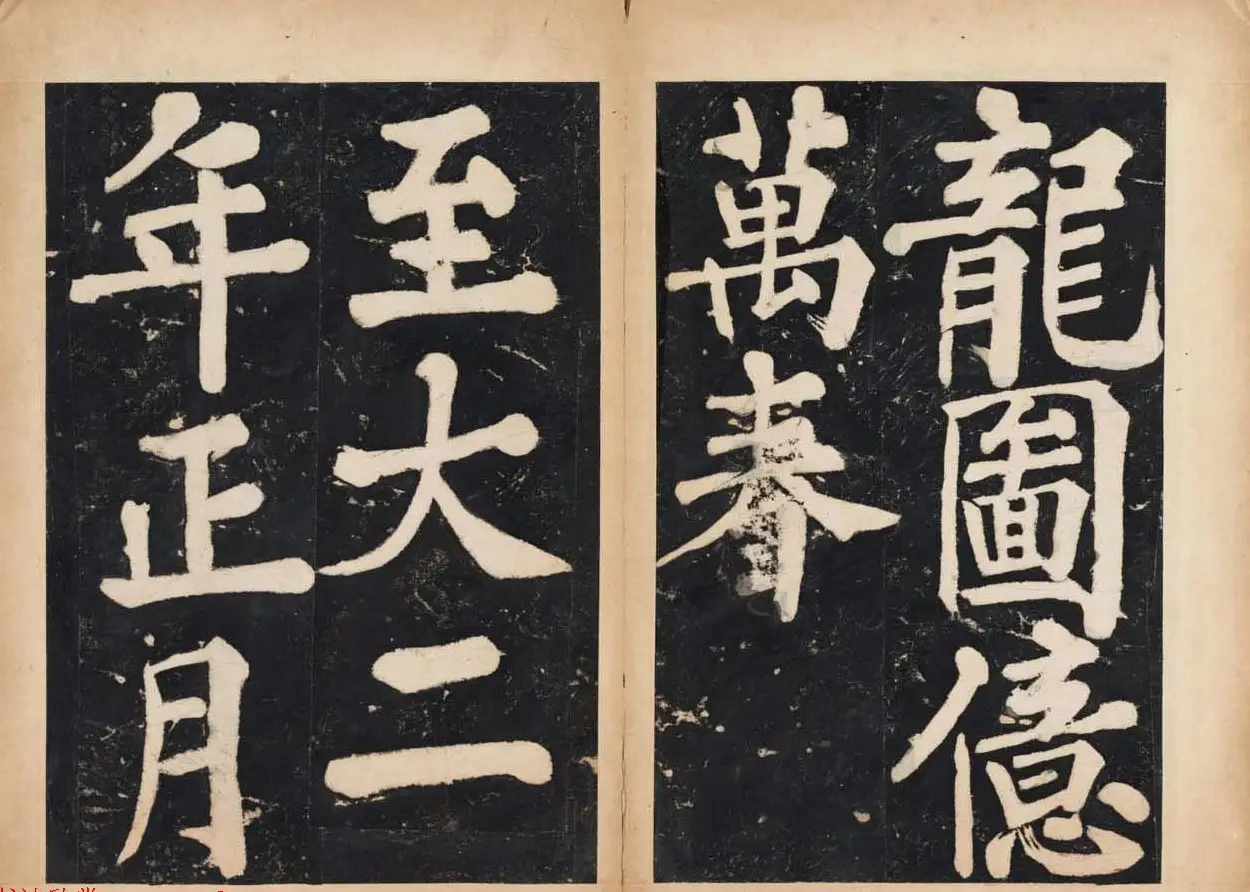 龍圖億
萬春
至大二
年正月